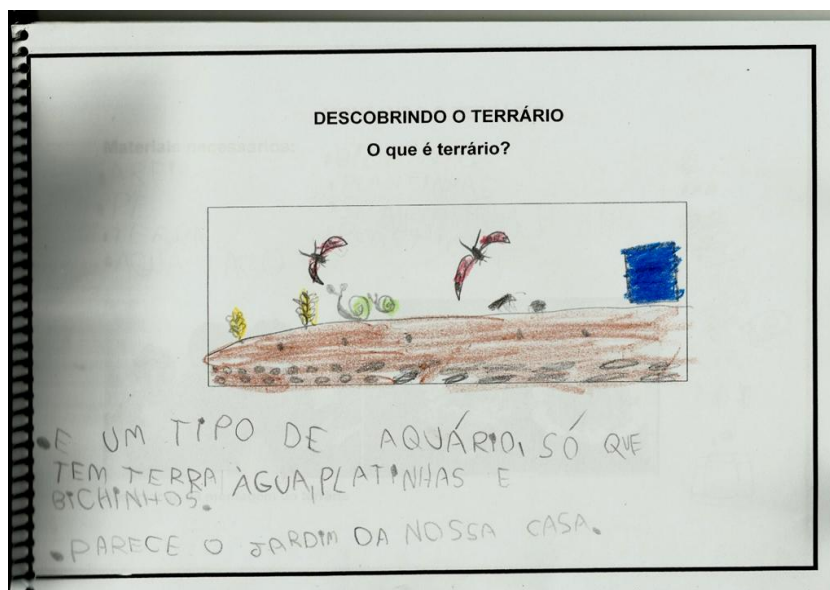 DESCOBRINDO O TERRÁRIO
O que é terrário?
•E UM TIPO DE AQUÁRIO, SÓ QUE
TEM TERRA ÀGUA, PLATINHAS E
BICHINHOS.
•PARECE O JARDIM DA NOSSA CASA.